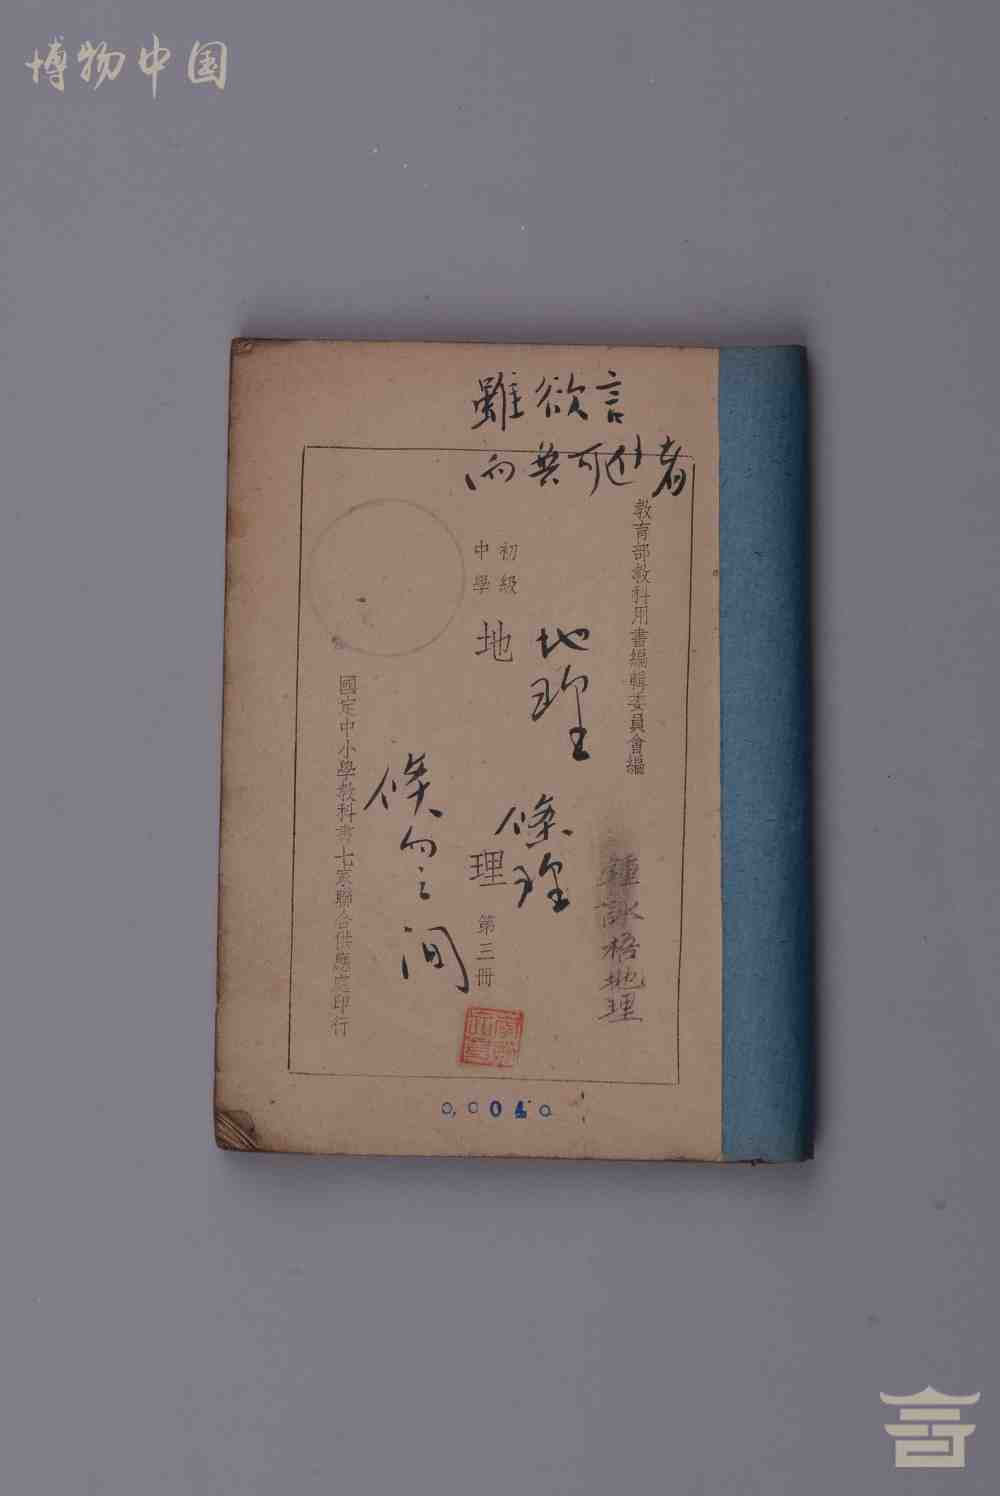 博物中国
雖欲言
而無可進者
教育部教科用書編輯委員會編
初級
中學
地理
第三冊
地理
條理
條向之間
鍾詠梧地理
國定中小學教科書七家聯合供應處印行